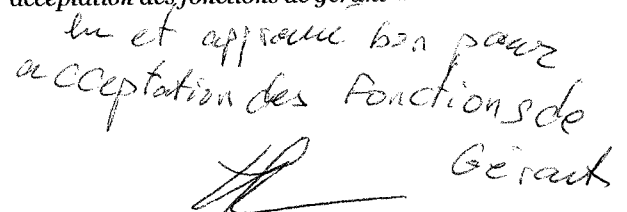 acceptation des fonctions de gérant
lu et approuvé bon pour
acceptation des Fonctions de
Gérant